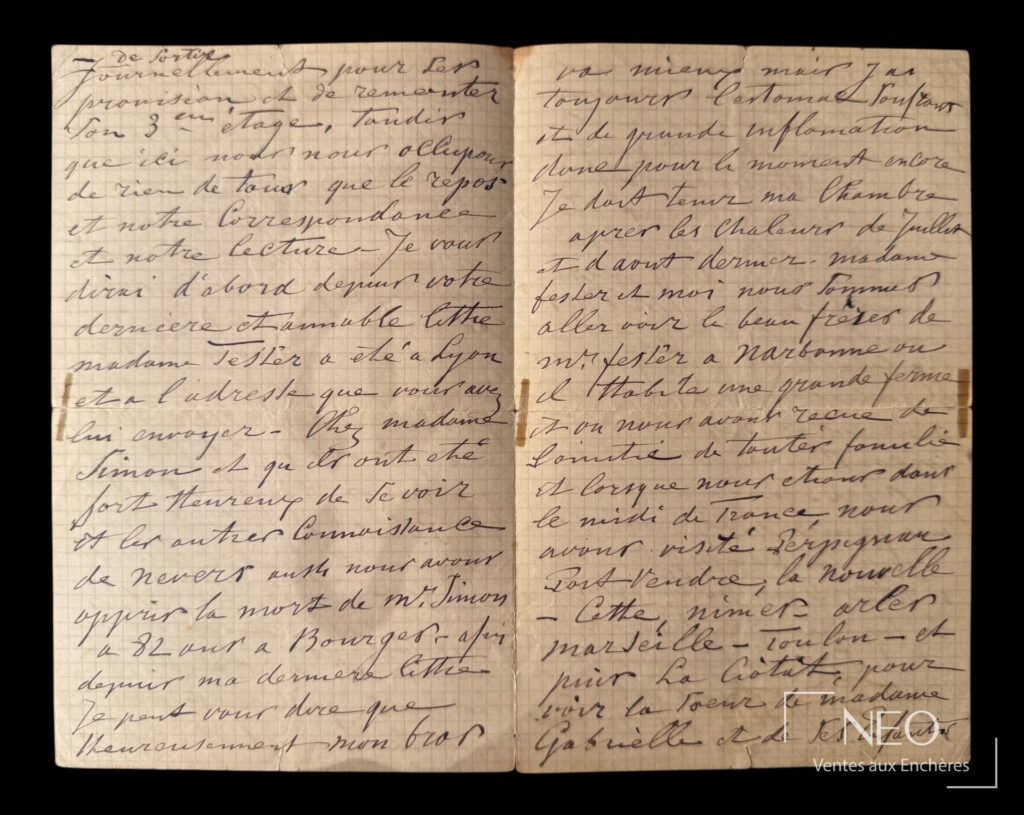 de Sortir
Journellement pour les
provision et de remonter
Son 3 en étage, tandis
que ici nous nous occupons
de rien de tous que le repos
et notre Correspondance
et notre lecture - Je vous
dirai d'abord depuis votre
derniere et aimable lettre
madame Fester a eté a Lyon
et a l'adresse que vous avez
lui envoyer - Chez madame
Simon et qu ils ont eté
fort Heureux de Se voir
et les autres Connaissance
de nevers aussi nous avons
appris la mort de mr. Simon
a 82 ans a Bourges -
depuis ma derniere lettre
Je peut vous dire que
Heureusement mon bras
va mieux mais J ai
toujours l'estomac
et de grande inflamation
donc pour le moment encore
Je doit tenir ma Chambre
apres les Chaleurs de Juillet
et d aout dernier - madame
fester et moi nous Sommes
aller voir le beau frères de
mr. fester a Narbonne ou
il Habite une grande ferme
et ou nous avons recue de
L'amitié de toutes famille
et lorsque nous etions dans
le midi de France, nous
avons visité Perpignan
Port Vendre, la nouvelle
- Cette, nimes - arles
marseille - Toulon - et
puis La Ciotat, pour
voir la Soeur de madame
Gabrielle et de Ses
NEO
Ventes aux Enchères